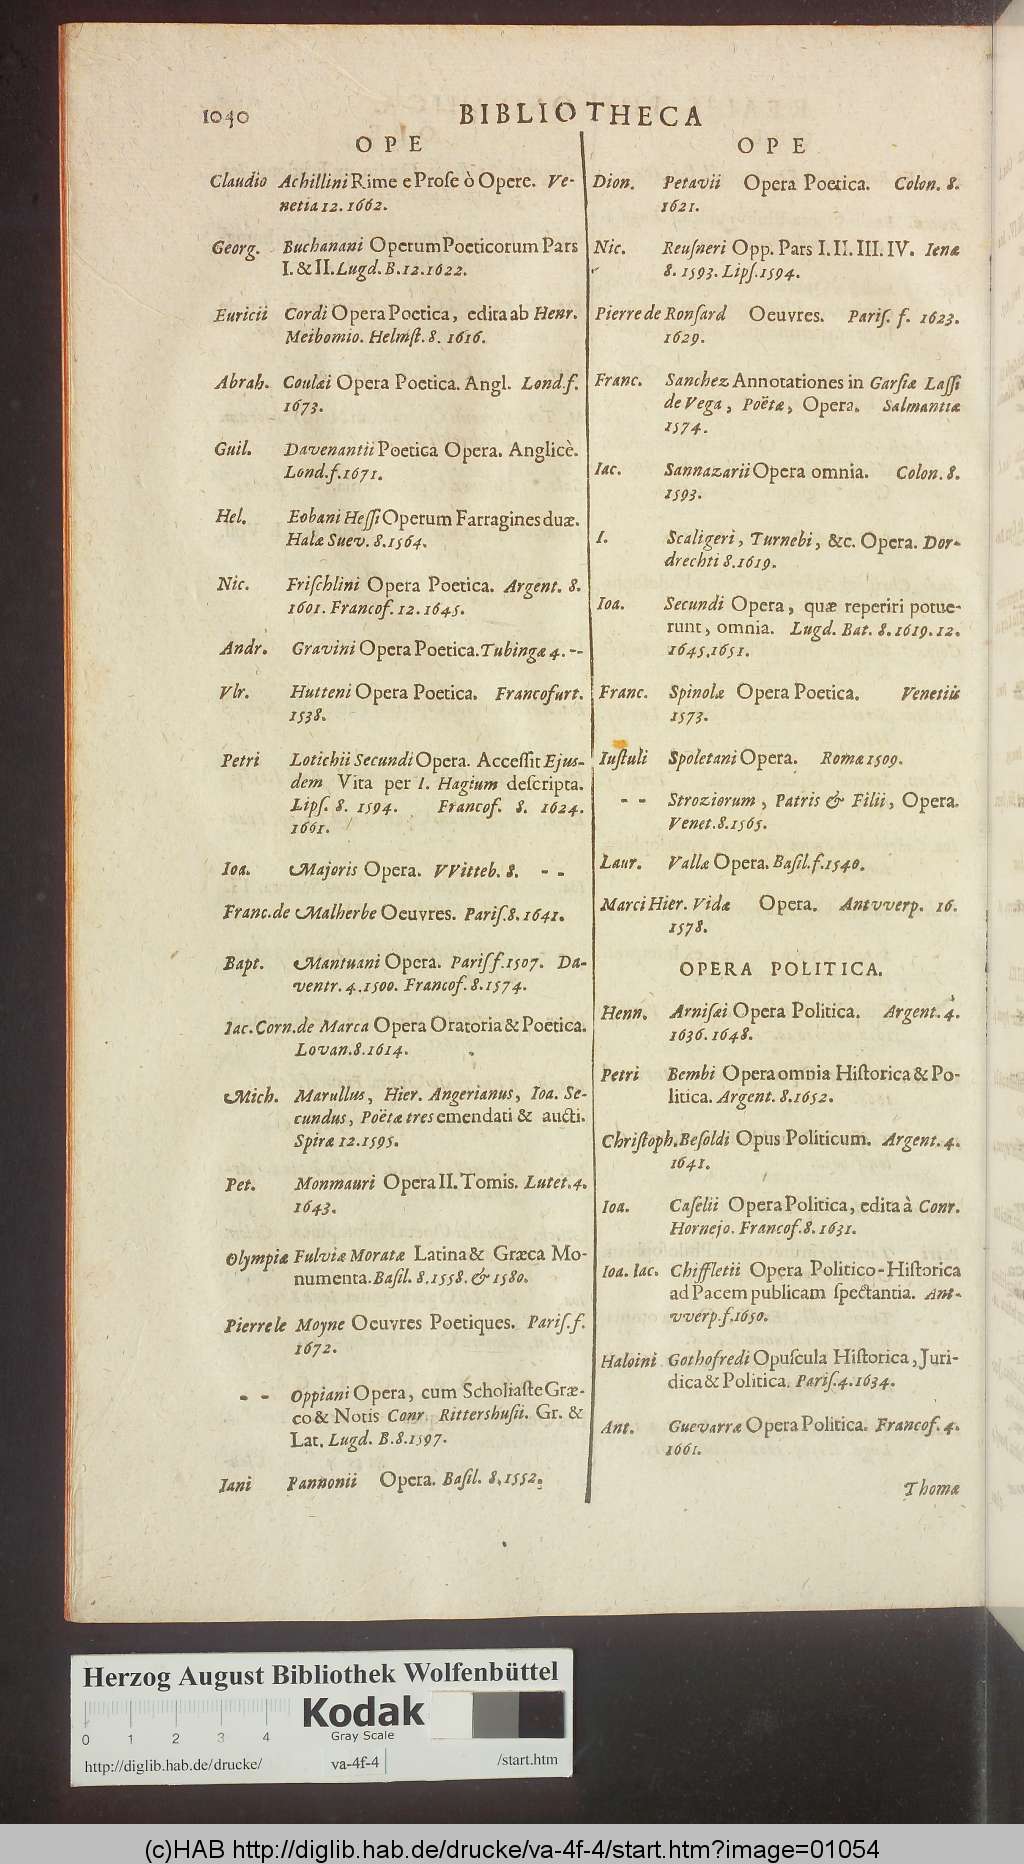 1040 BIBLIOTHECA
OPE
Claudio Achillini Rime e Prose ò Opere. Ve-
netia 12. 1662.
Georg. Buchanani Operum Poeticorum Pars
I. & II. Lugd. B. 12. 1622.
Euricii Cordi Opera Poetica, edita ab Henr.
Meibomio. Helmſt. 8. 1616.
Abrah. Coulæi Opera Poetica. Angl. Lond. f.
1673.
Guil. Davenantii Poetica Opera. Anglicè.
Lond. f. 1671.
Hel. Eobani Heſſi Operum Farragines duæ.
Halæ Suev. 8. 1564.
Nic. Friſchlini Opera Poetica. Argent. 8.
1601. Francof. 12. 1645.
Andr. Gravini Opera Poetica. Tubingæ 4. --
Vlr. Hutteni Opera Poetica. Francofurt.
1538.
Petri Lotichii Secundi Opera. Acceſſit Ejus-
dem Vita per I. Hagium deſcripta.
Lipſ. 8. 1594. Francof. 8. 1624.
1661.
Ioa. Majoris Opera. VVitteb. 8. - -
Franc. de Malherbe Oeuvres. Pariſ. 8. 1641.
Bapt. Mantuani Opera. Pariſ f. 1507. Da-
ventr. 4. 1500. Francof. 8. 1574.
Iac. Corn. de Marca Opera Oratoria & Poetica.
Lovan. 8. 1614.
Mich. Marullus, Hier. Angerianus, Ioa. Se-
cundus, Poëtæ tres emendati & aucti.
Spiræ 12. 1595.
Pet. Monmauri Opera II. Tomis. Lutet. 4.
1643.
Olympiæ Fulviæ Moratæ Latina & Græca Mo-
numenta. Baſil. 8. 1558. & 1580.
Pierre le Moyne Oeuvres Poetiques. Pariſ. f.
1672.
- - Oppiani Opera, cum Scholiaſte Græ-
co & Notis Conr. Rittershuſii. Gr. &
Lat. Lugd. B. 8. 1597.
Iani Pannonii Opera. Baſil. 8. 1552.
OPE
Dion. Petavii Opera Poetica. Colon. 8.
1621.
Nic. Reuſneri Opp. Pars I. II. III. IV. Ienæ
8. 1593. Lipſ. 1594.
Pierre de Ronſard Oeuvres. Pariſ. f. 1623.
1629.
Franc. Sanchez Annotationes in Garſiæ Laſſi
de Vega, Poëtæ, Opera. Salmantiæ
1574.
Iac. Sannazarii Opera omnia. Colon. 8.
1593.
I. Scaligeri, Turnebi, &c. Opera. Dor-
drechti 8. 1619.
Ioa. Secundi Opera, quæ reperiri potue-
runt, omnia. Lugd. Bat. 8. 1619. 12.
1645. 1651.
Franc. Spinolæ Opera Poetica. Venetiis
1573.
Iuſtuli Spoletani Opera. Romæ 1509.
- - Stroziorum, Patris & Filii, Opera.
Venet. 8. 1565.
Laur. Vallæ Opera. Baſil. f. 1540.
Marci Hier. Vidæ Opera. Antvverp. 16.
1578.
OPERA POLITICA.
Henn. Arniſæi Opera Politica. Argent. 4.
1636. 1648.
Petri Bembi Opera omnia Hiſtorica & Po-
litica. Argent. 8. 1652.
Chriſtoph. Beſoldi Opus Politicum. Argent. 4.
1641.
Ioa. Caſelii Opera Politica, edita à Conr.
Hornejo. Francof. 8. 1631.
Ioa. Iac. Chiffletii Opera Politico-Hiſtorica
ad Pacem publicam ſpectantia. Ant-
vverp. f. 1650.
Haloini Gothofredi Opuſcula Hiſtorica, Juri-
dica & Politica. Pariſ. 4. 1634.
Ant. Guevarræ Opera Politica. Francof. 4.
1661.
Thomæ
Herzog August Bibliothek Wolfenbüttel
Kodak
Gray Scale
0 1 2 3 4
http://diglib.hab.de/drucke/ va-4f-4 /start.htm
(c)HAB http://diglib.hab.de/drucke/va-4f-4/start.htm?image=01054